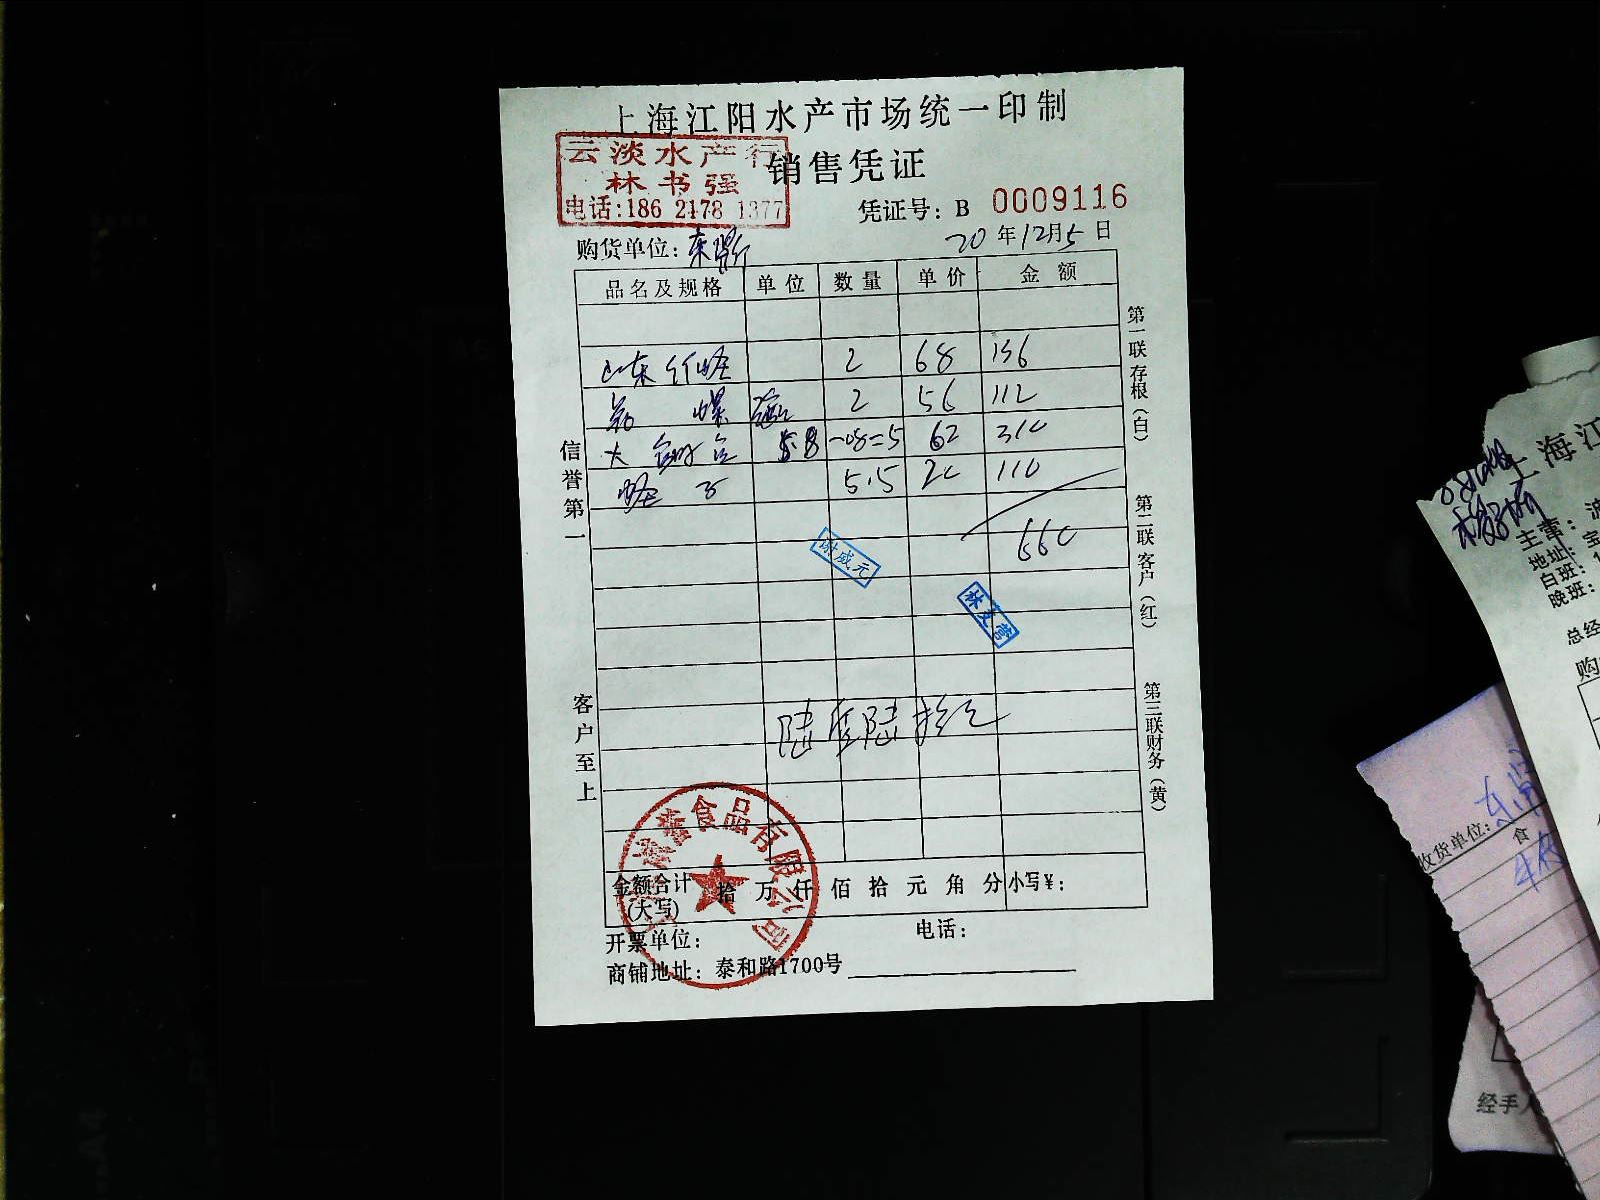 上海江阳水产市场统一印制
云淡水产行
林书强
电话:186 2178 1377
销售凭证
凭证号: B 0009116
购货单位: 东
20 年 12月 5 日
品名及规格 单位 数量 单价 金额
山东竹蛏 2 68 136
螺 2 56 112
大 5.8 -08=5 62 310
蛏子 5.5 20 110
660
谢成元
林文营
陆佰陆拾元
信誉第一
客户至上
第一联存根(白)
第二联客户(红)
第三联财务(黄)
食品有限公司
金额合计(大写) 拾 万 仟 佰 拾 元 角 分 小写¥:
开票单位: 电话:
商铺地址: 泰和路1700号
上海江
主事:
地址: 宝
白班:
晚班:
总经
购
收货单位:
食
经手人